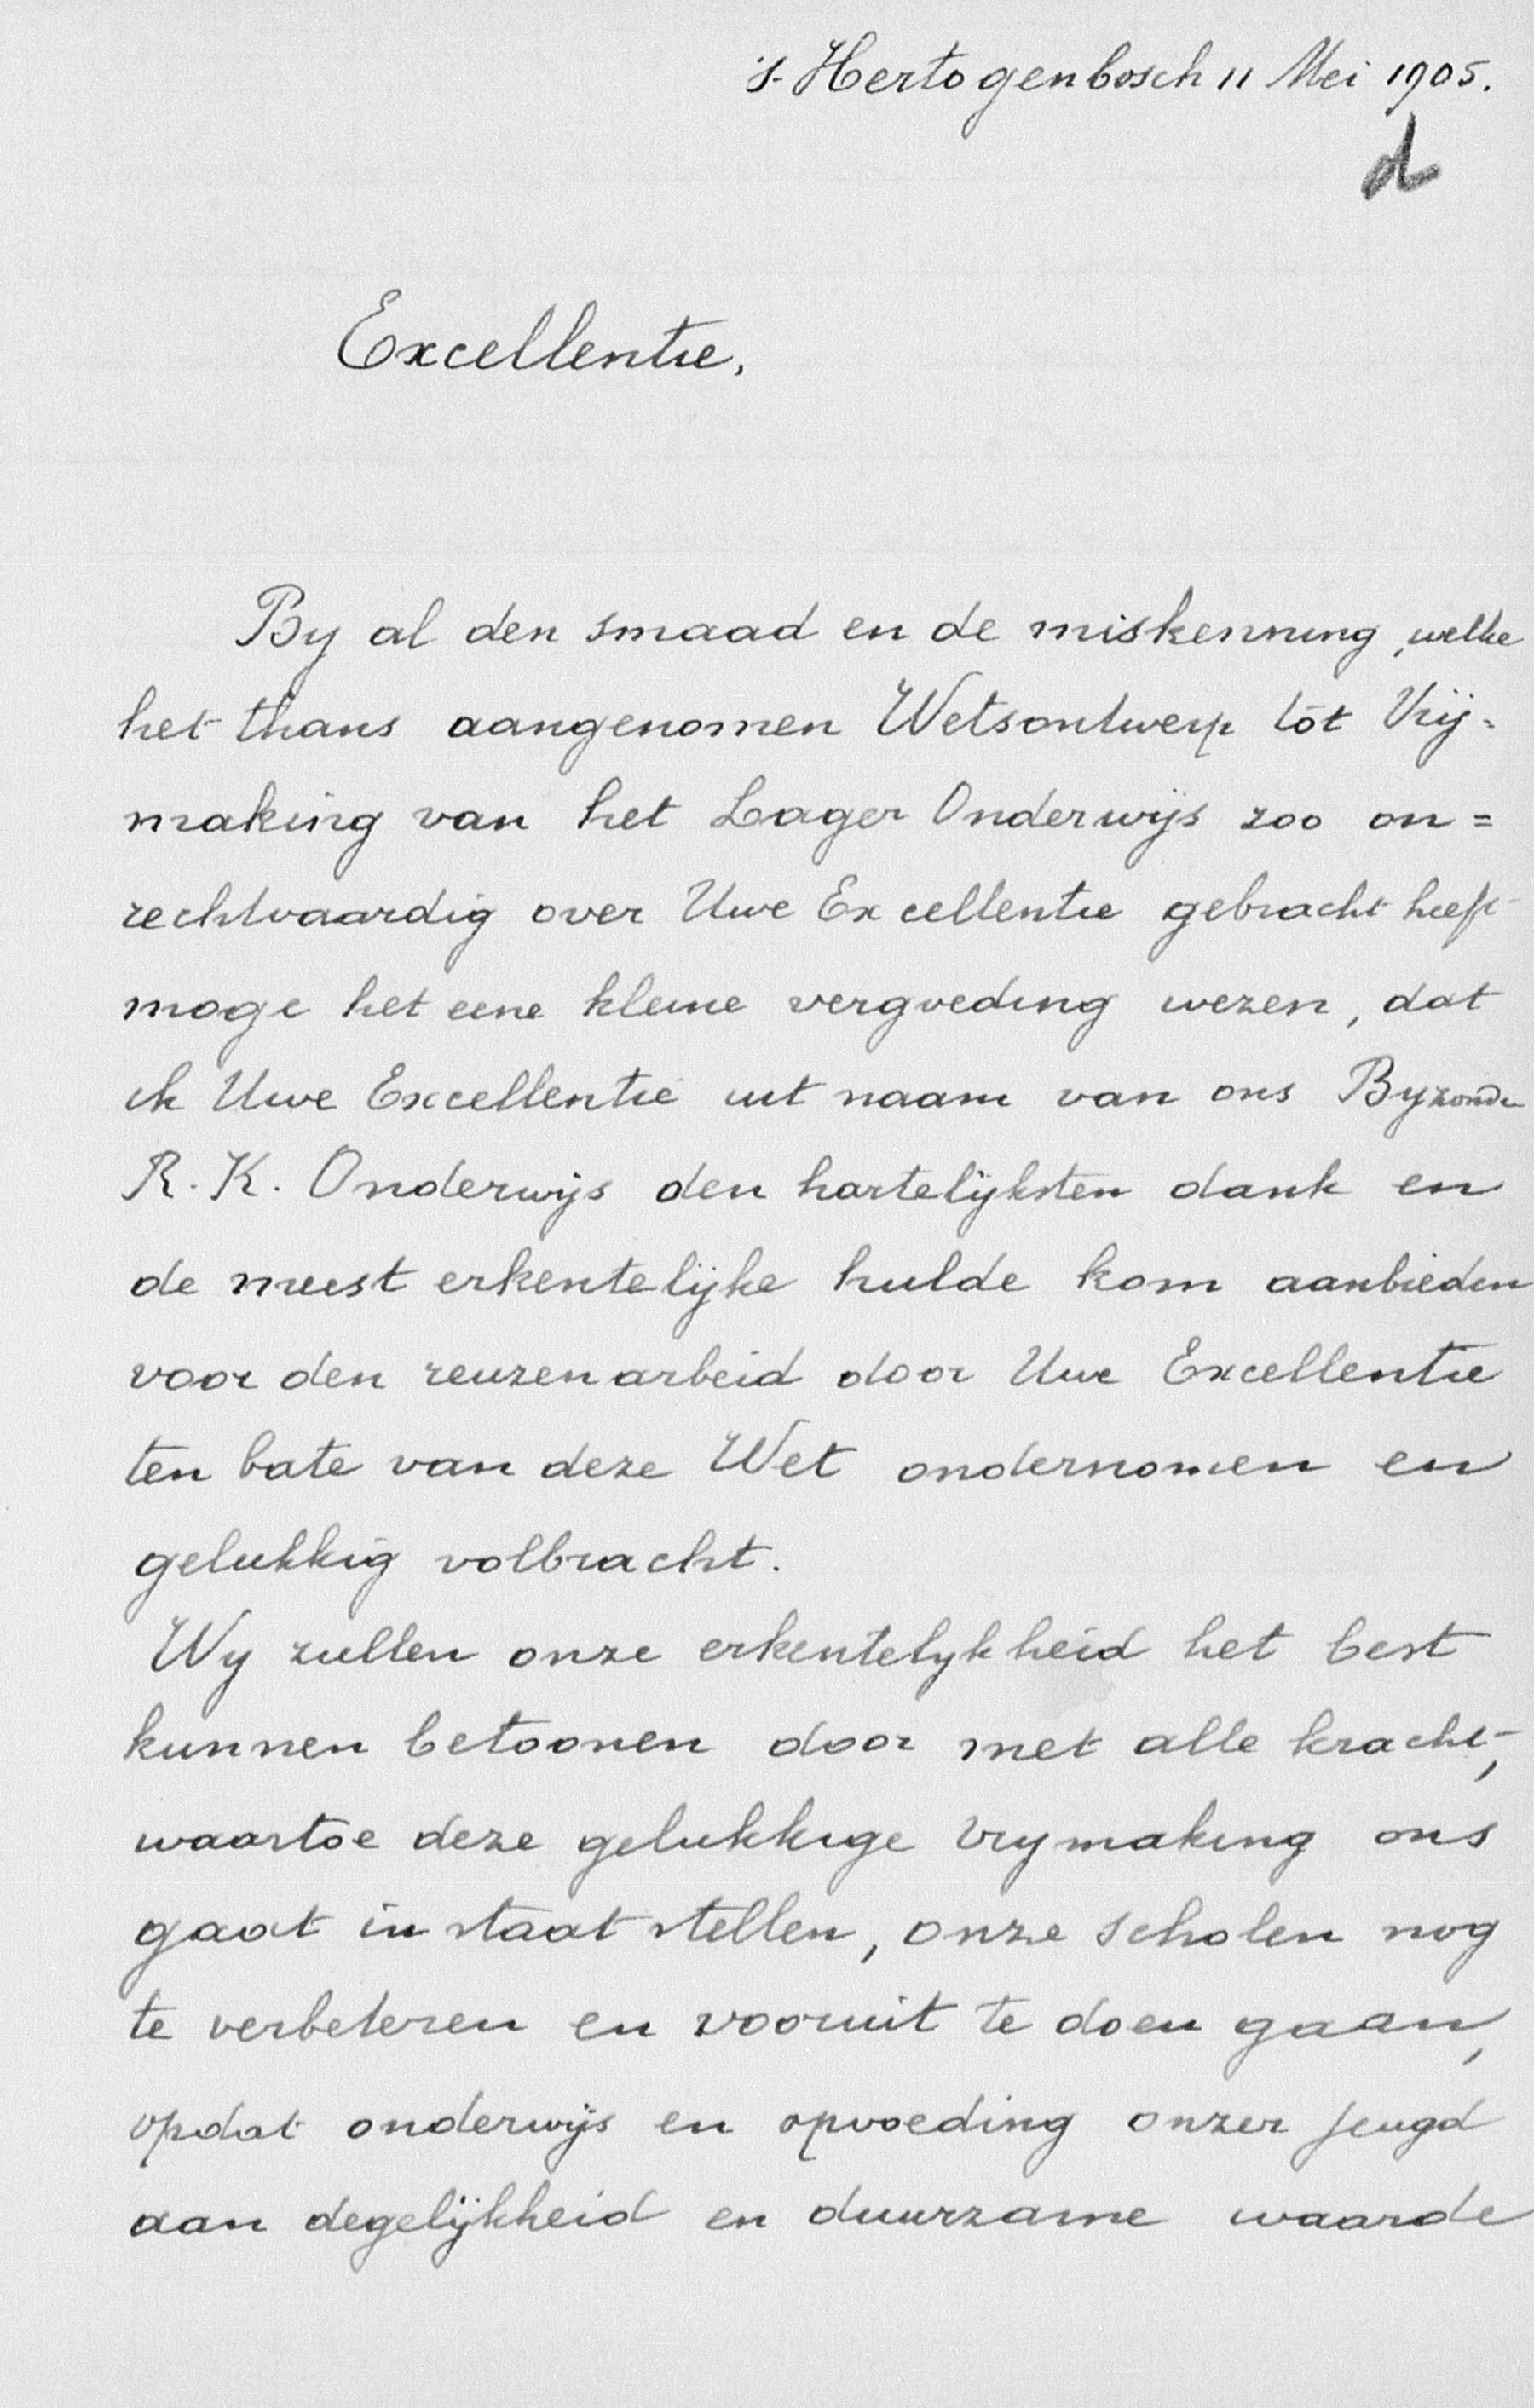 's-Hertogenbosch 11 Mei 1905.
d
Excellentie,
By al den smaad en de miskenning, welke
het thans aangenomen Wetsontwerp tot Vrij-
making van het Lager Onderwijs zoo on=
rechtvaardig over Uwe Excellentie gebracht heeft
moge het eene kleine vergoeding wezen, dat
ik Uwe Excellentie uit naam van ons Byzonder
R. K. Onderwijs den hartelijksten dank en
de meest erkentelijke hulde kom aanbieden
voor den reuzenarbeid door Uwe Excellentie
ten bate van deze Wet ondernomen en
gelukkig volbracht.
Wy zullen onze erkentelykheid het best
kunnen betoonen door met alle kracht,
waartoe deze gelukkige vrymaking ons
gaat in staat stellen, onze scholen nog
te verbeteren en vooruit te doen gaan,
opdat onderwijs en opvoeding onzer jeugd
aan degelijkheid en duurzame waarde